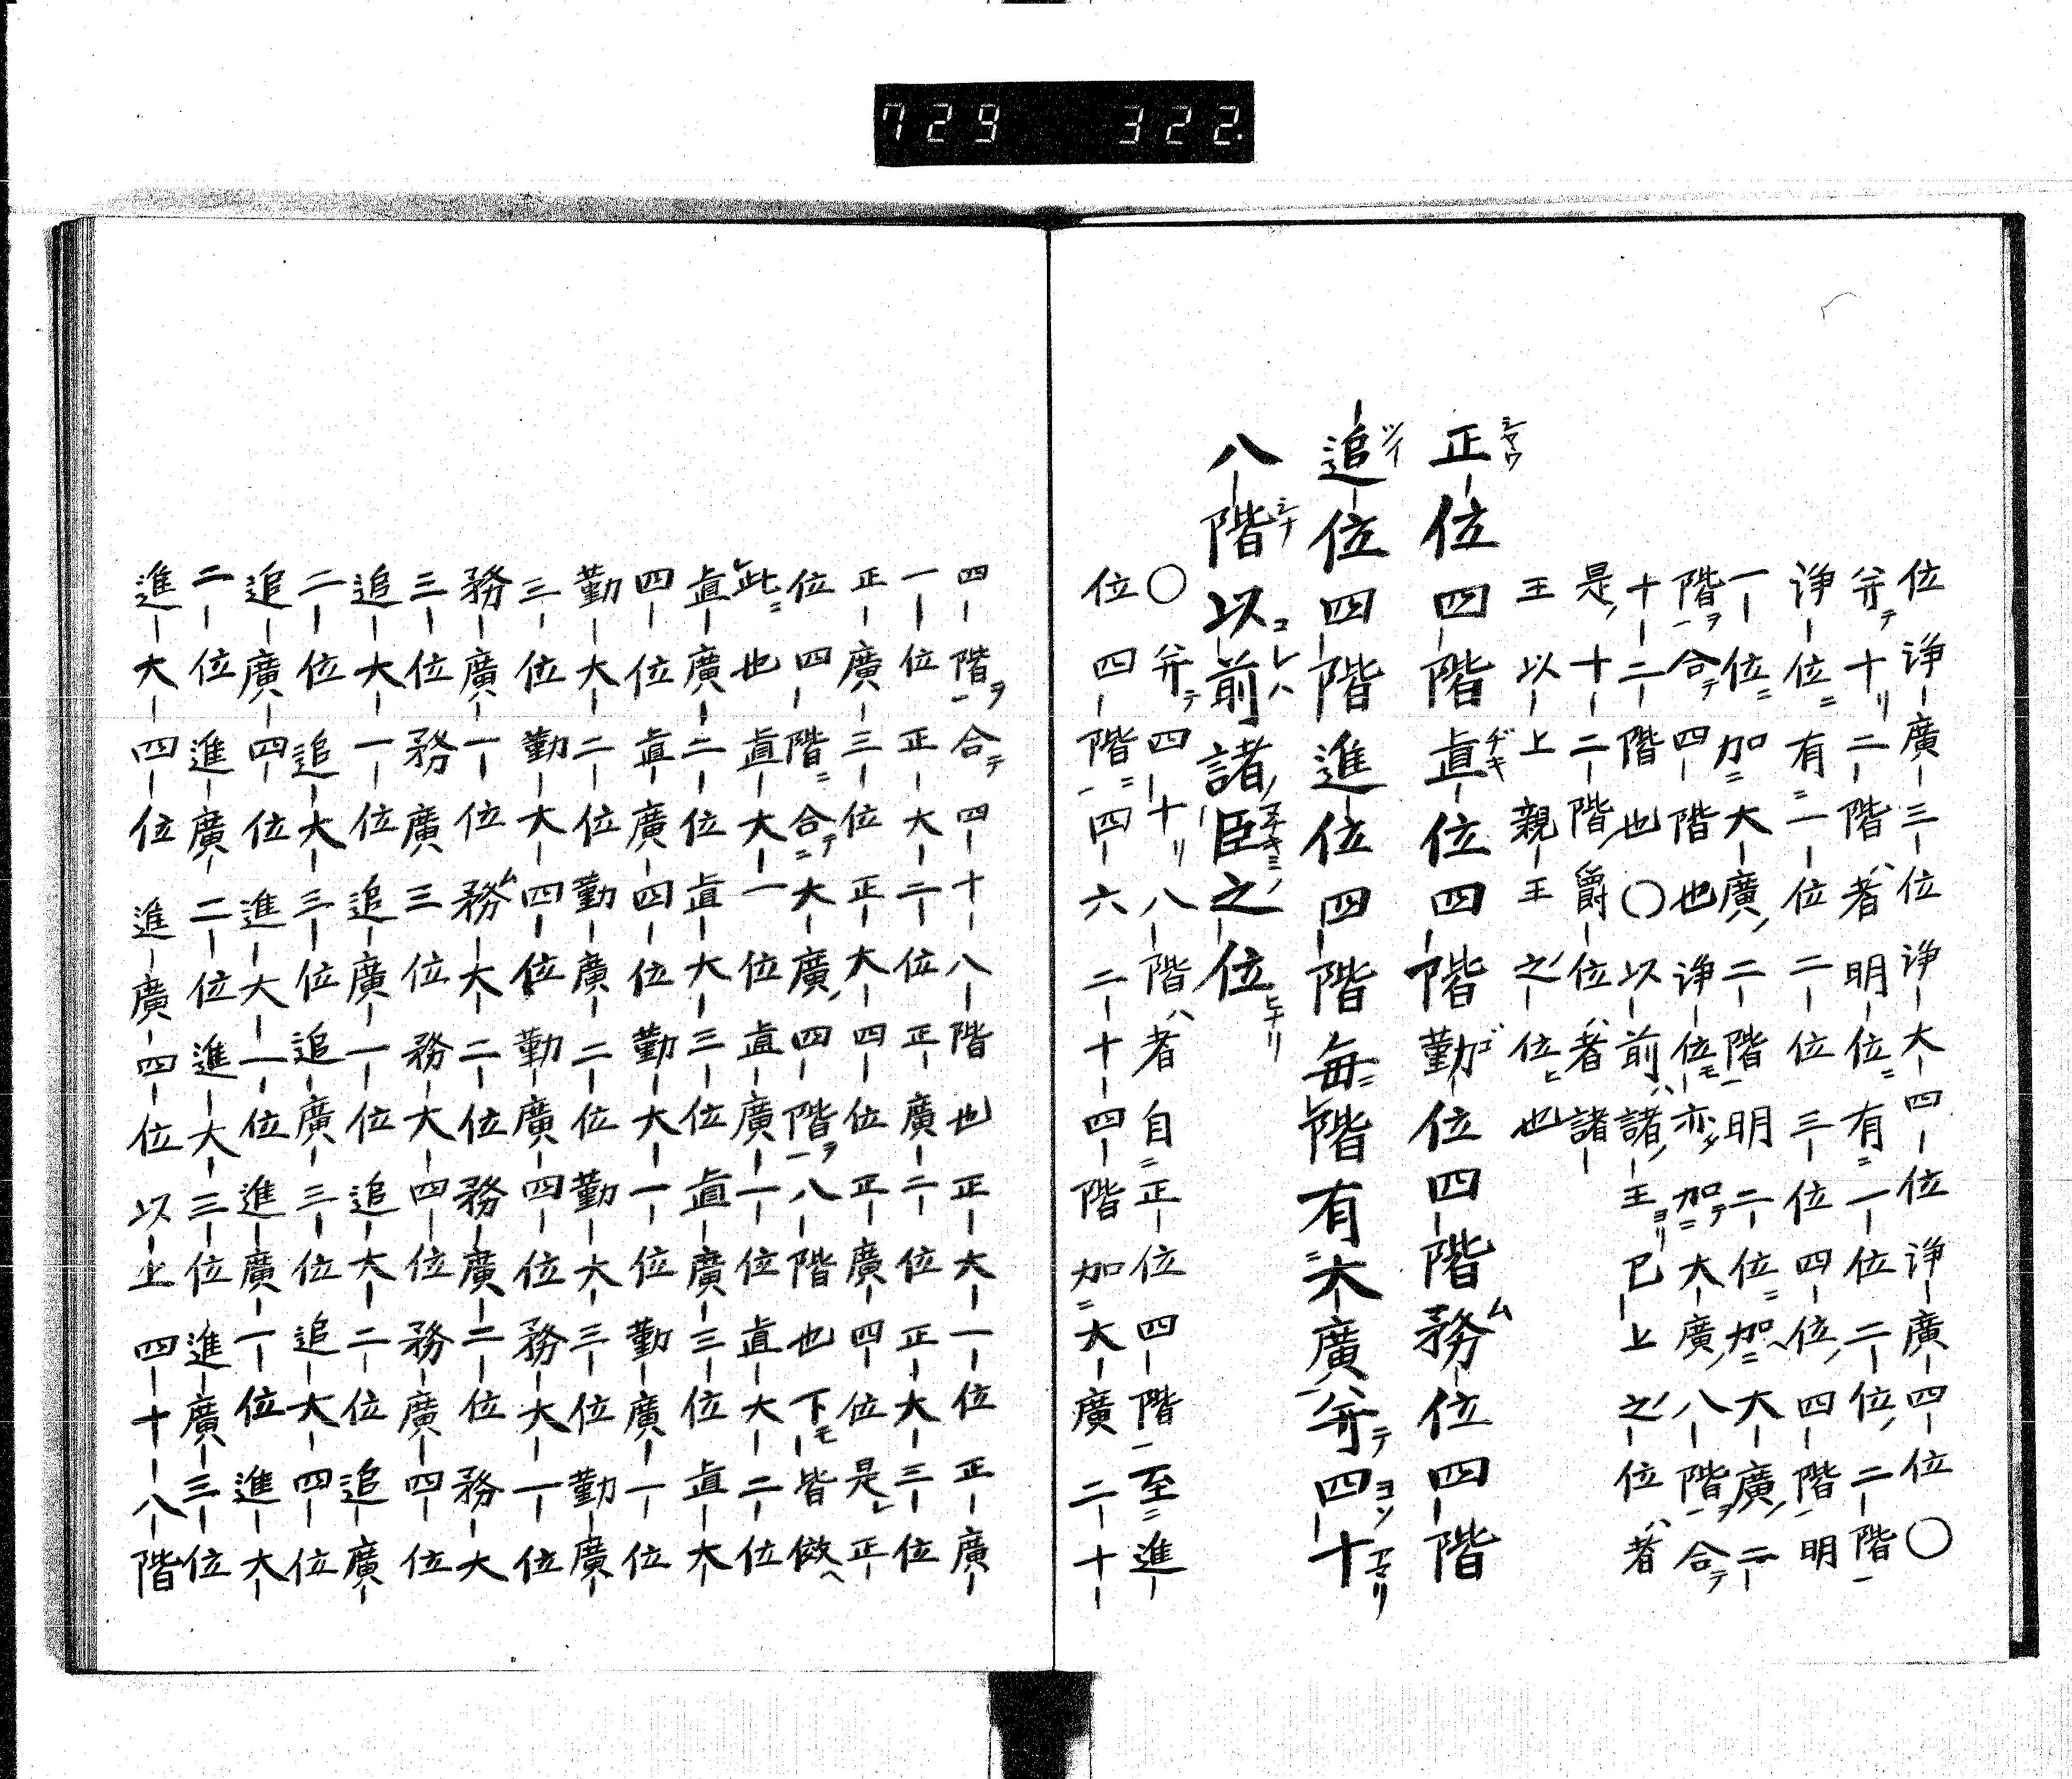 729 322
位浄廣三位浄大四位浄廣四位〇
并十二階者明位有一位二位二階
浄位有一位二位三位四位四階明
一位加大廣二階明二位加大廣二
階合四階也浄位亦加大廣八階合
十二階也〇以前諸王已上之位者
是十二階爵位者諸
王以上親王之位也
正位四階直位四階勤位四階務位四階
追位四階進位四階毎階有大廣并四十
八階以前諸臣之位
〇并四十八階者自正位四階至進
位四階四六二十四階加大廣二十
四階合四十八階也正大一位正廣
一位正大二位正廣二位正大三位
正廣三位正大四位正廣四位是正
位四階合大廣四階八階也下皆倣
此也直大一位直廣一位直大二位
直廣二位直大三位直廣三位直大
四位直廣四位勤大一位勤廣一位
勤大二位勤廣二位勤大三位勤廣
三位勤大四位勤廣四位務大一位
務廣一位務大二位務廣二位務大
三位務廣三位務大四位務廣四位
追大一位追廣一位追大二位追廣
二位追大三位追廣三位追大四位
追廣四位進大一位進廣一位進大
二位進廣二位進大三位進廣三位
進大四位進廣四位以上四十八階